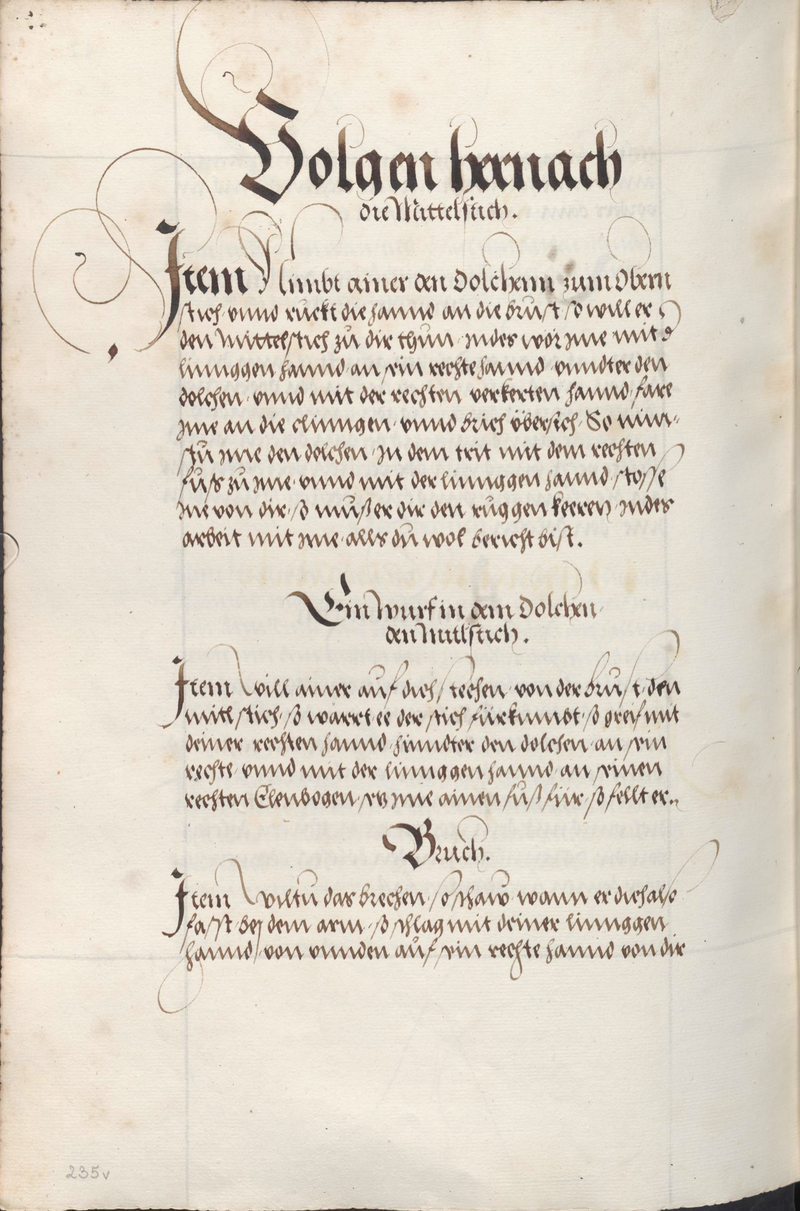 Volgen hernach
die Mittelstich.
Item Nimbt ainer den Dolchenn zum Obern
stich vnnd ruckt die hannd an die brust so will er
den Mittelstich zů dir thun, Indes wör Ime mit d
linnggen hannd an sein rechte hannd vnndter den
dolchen, vnnd mit der rechten verkerten hannd fare
Ime an die clinngen, vnnd brich übersich, So nim-
stu Ime den dolchen, In dem trit mit dem rechten
fuß zů Ime, vnnd mit der linnggen hannd stosse
Ine von dir, so mußer dir den ruggen keeren, Indes
arbeit mit Ime, alls du wol bericht bist.
Ein Wurf in dem Dolchen,
den Mitlstich.
Item will ainer auf dich stechen von der brust den
mitlstich, so warrt ee der stich fürkumbt, so greif mit
deiner rechten hannd hinndter den dolchen an sein
rechte, vnnd mit der linnggen hannd an seinen
rechten Elenbogen, setz Ime ainen fuß für, so fellt er.
Bruch.
Item wiltu das brechen, so schaw wann er dich also
fasst bej dem arm, so schlag mit deiner linnggen
hannd, von vnnden auf sein rechte hannd von dir
235v